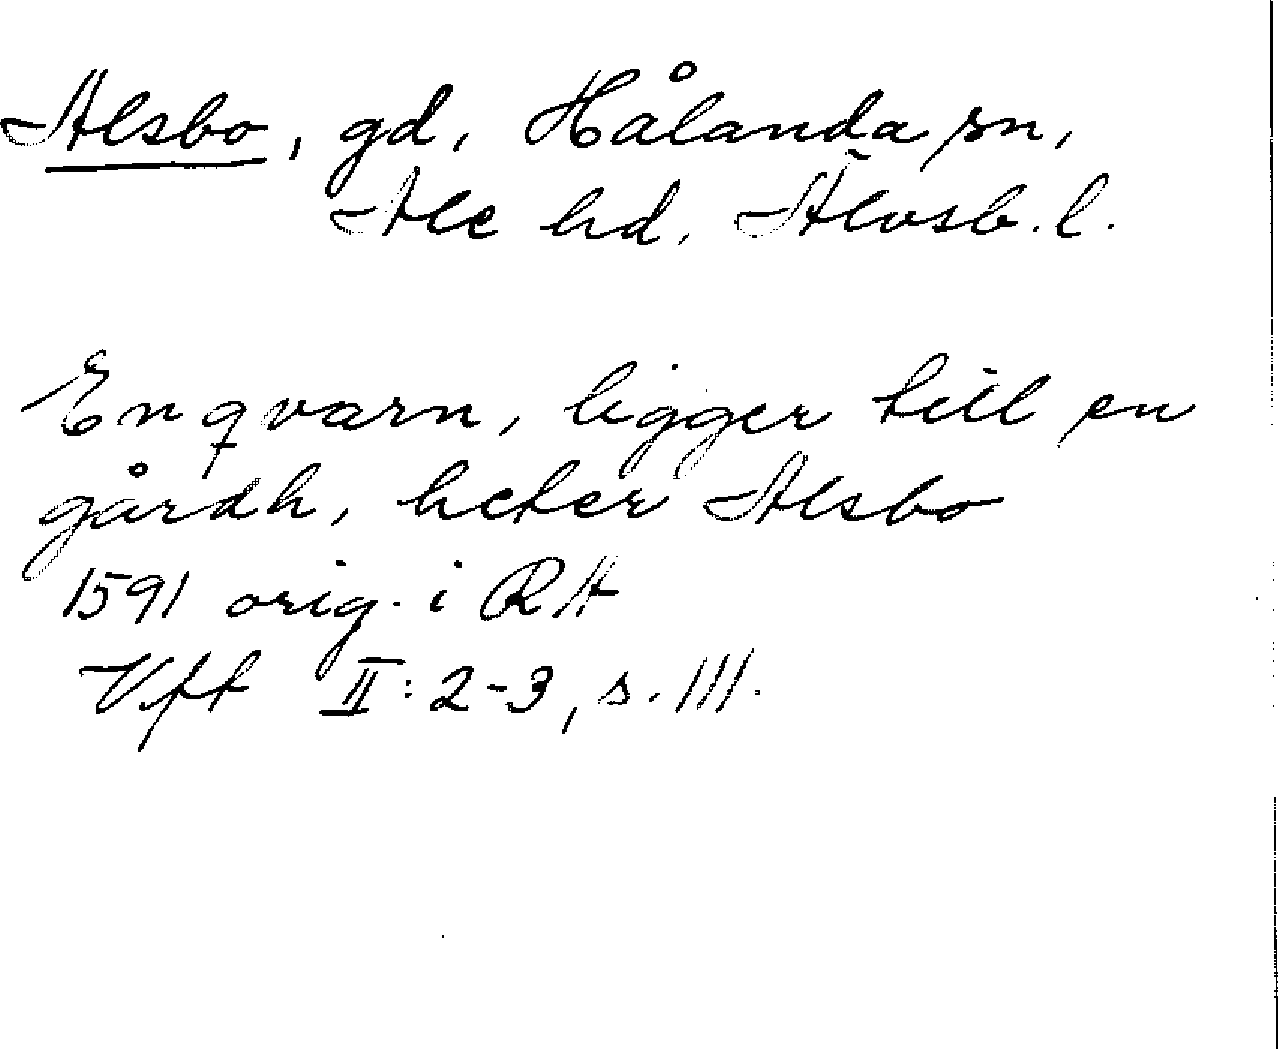 Alsbo, gd, Hålanda sn,
Ale hd, Älvsb. l.
En qvarn, ligger till en
gårdh, heter Alsbo
1591 orig. i RA
Vft II: 2-3, s. 111.